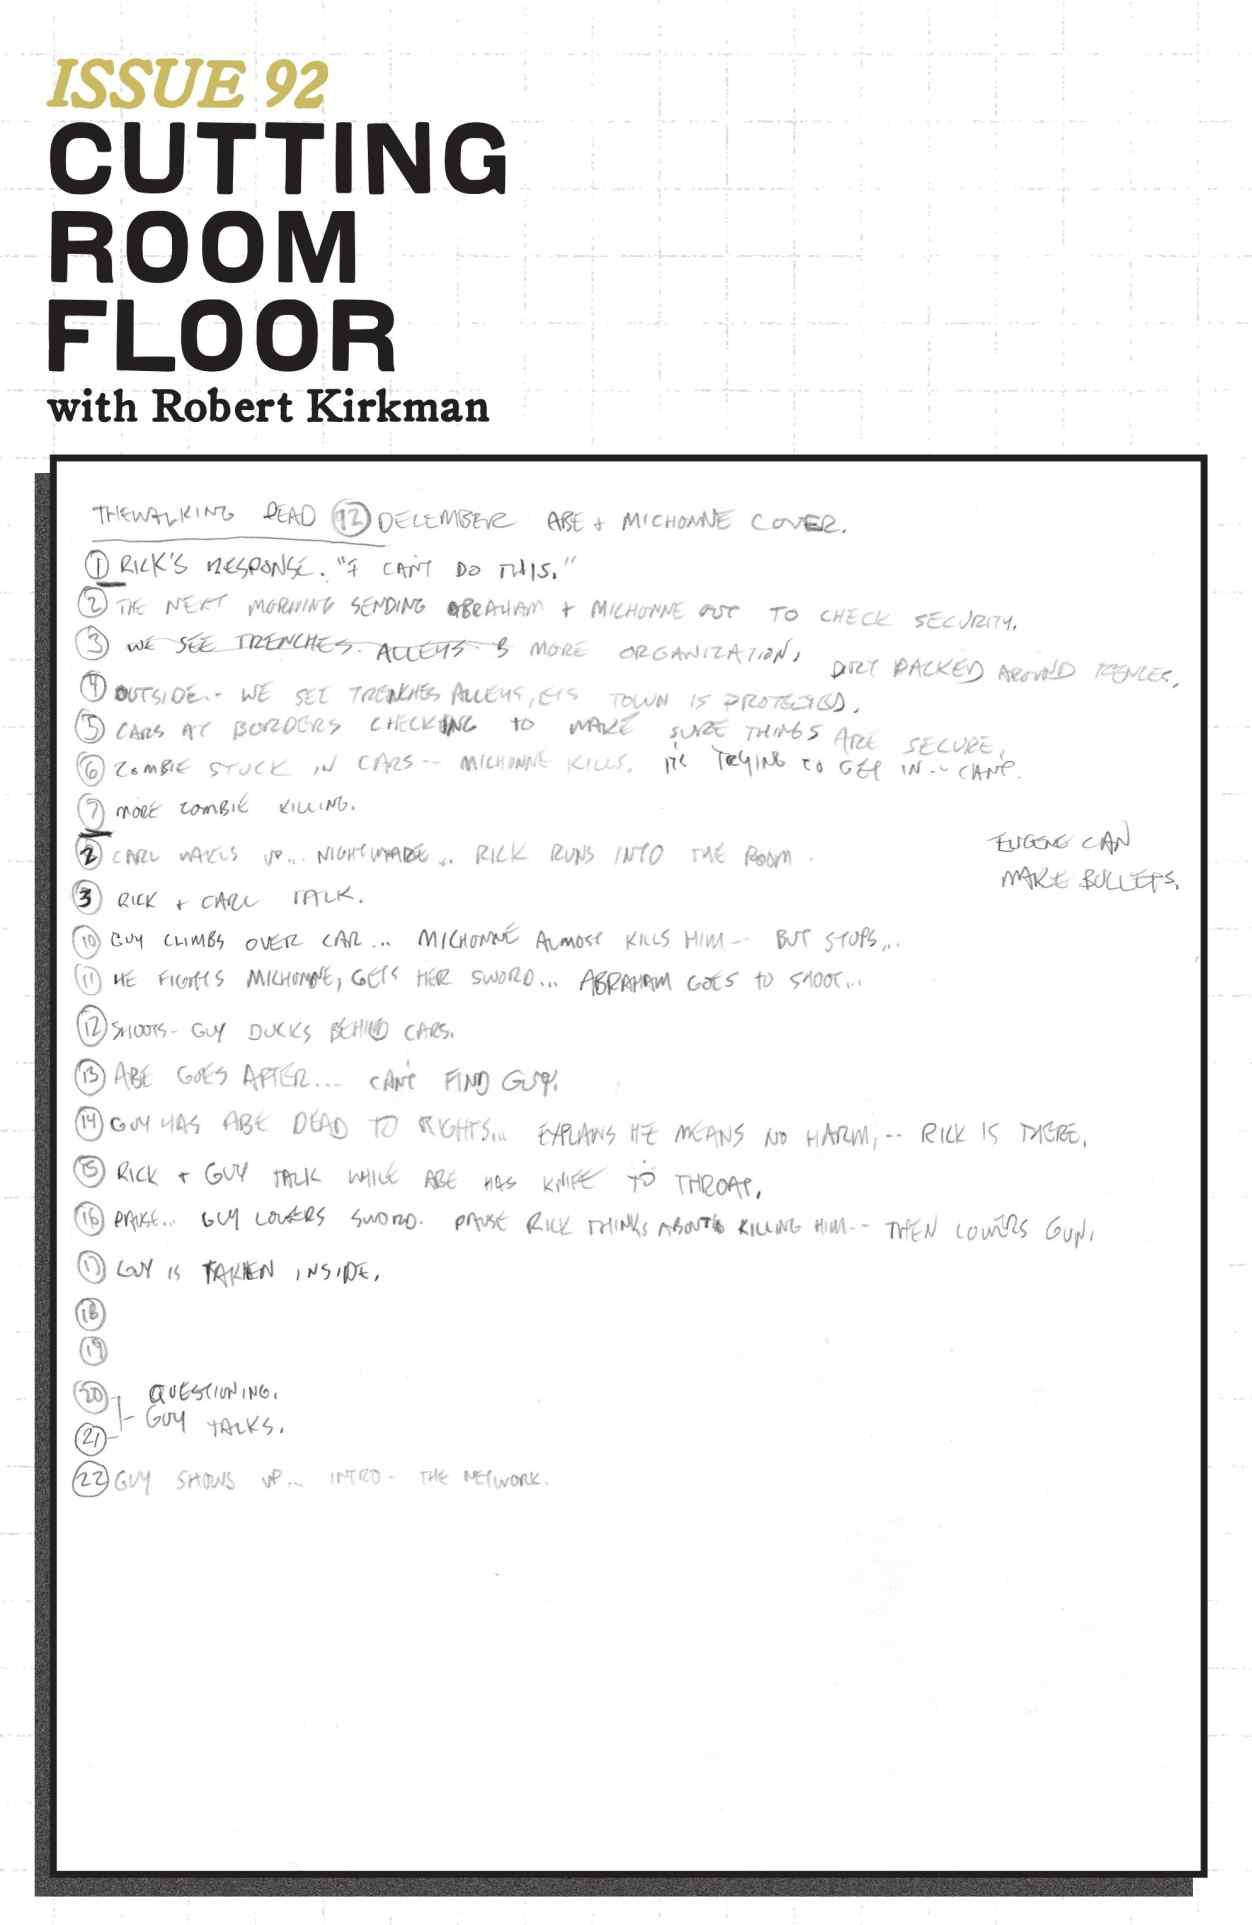 ISSUE 92
CUTTING
ROOM
FLOOR
with Robert Kirkman
THE WALKING DEAD 92 DECEMBER ABE + MICHONNE COVER.
1 RICK'S RESPONSE. "I CAN'T DO THIS."
2 THE NEXT MORNING SENDING ABRAHAM + MICHONNE OUT TO CHECK SECURITY.
3 WE SEE TRENCHES. ALLEYS & MORE ORGANIZATION, DIRT PACKED AROUND FENCES.
4 OUTSIDE-- WE SEE TRENCHES ALLEYS, ETC TOWN IS PROTECTED.
5 CARS AT BORDERS CHECKING TO MAKE SURE THINGS ARE SECURE.
6 ZOMBIE STUCK IN CARS-- MICHONNE KILLS. TRYING TO GET IN-- CAN'T.
7 MORE ZOMBIE KILLING.
EUGENE CAN
MAKE BULLETS.
2 CARL WAKES UP... NIGHTMARE.. RICK RUNS INTO THE ROOM.
3 RICK + CARL TALK.
10 GUY CLIMBS OVER CAR... MICHONNE ALMOST KILLS HIM-- BUT STOPS...
11 HE FIGHTS MICHONNE, GETS HER SWORD... ABRAHAM GOES TO SHOOT...
12 SHOOTS- GUY DUCKS BEHIND CARS.
13 ABE GOES AFTER... CAN'T FIND GUY.
14 GUY HAS ABE DEAD TO RIGHTS... EXPLAINS HE MEANS NO HARM, -- RICK IS THERE.
15 RICK + GUY TALK WHILE ABE HAS KNIFE TO THROAT.
16 PAUSE... GUY LOWERS SWORD. PAUSE RICK THINKS ABOUT KILLING HIM-- THEN LOWERS GUN.
17 GUY IS TAKEN INSIDE.
18
19
20 QUESTIONING.
GUY TALKS.
21
22 GUY SHOWS UP... INTRO- THE NETWORK.